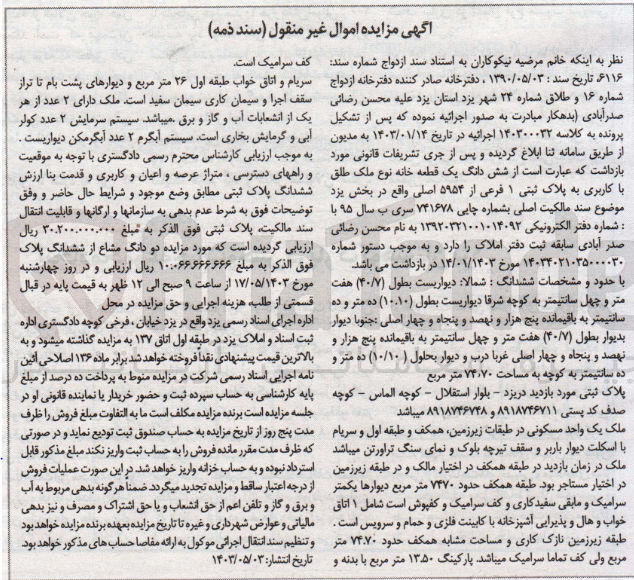 آگهی مزایده اموال غیر منقول (سند ذمه)
نظر به اینکه خانم مرضیه نیکوکاران به استناد سند ازدواج شماره سند:
۶۱۱۶، تاریخ سند : ۱۳۹۰/۰۵/۰۳ ، دفترخانه صادر کننده دفترخانه ازدواج
شماره ۱۶ و طلاق شماره ۲۴ شهر یزد استان یزد علیه محسن رضائی
صدرآبادی (بدهکار مبادرت به صدور اجرائیه نموده که پس از تشکیل
پرونده به کلاسه ۱۴۰۳۰۰۰۳۲ اجرائیه در تاریخ ۱۴۰۳/۰۱/۱۴ به مدیون
از طریق سامانه ثنا ابلاغ گردیده و پس از جری تشریفات قانونی مورد
بازداشت که عبارت است از شش دانگ یک قطعه خانه نوع ملک طلق
با کاربری به پلاک ثبتی ۱ فرعی از ۵۹۵۴ اصلی واقع در بخش یزد
موضوع سند مالکیت اصلی بشماره چاپی ۷۴۱۶۷۸ سری ب سال ۹۵ با
: شماره دفتر الکترونیکی ۱۳۹۲۰۳۲۱۰۰۱۰۱۴۰۹۲ به نام محسن رضائی
صدر آبادی سابقه ثبت دفتر املاک را دارد و به موجب دستور شماره
۱۴۰۳۴۰۲۱۰۳۵۰۰۰۰۳۰ مورخ ۱۴/۰۱/۱۴۰۳ در بازداشت می باشد.
با حدود و مشخصات ششدانگ : شمالا: دیواریست بطول (۴۰/۷) هفت
متر و چهل سانتیمتر به کوچه شرقا دیواریست بطول (۱۰.۱۰) ده متر و ده
سانتیمتر به باقیمانده پنج هزار و نهصد و پنجاه و چهار اصلی :جنوبا دیوار
بدیوار بطول (۴۰/۷) هفت متر و چهل سانتیمتر به باقیمانده پنج هزار و
نهصد و پنجاه و چهار اصلی غربا درب و دیوار بحلول ( ۱۰/۱۰) ده متر و
ده سانتیمتر به کوچه به مساحت ۷۴.۷۰ متر مربع
پلاک ثبتی مورد بازدید دریزد - بلوار استقلال - کوچه الماس - کوچه
صدف کد پستی ۸۹۱۸۷۴۶۷۱۱ و ۸۹۱۸۷۴۶۷۴۸ میباشد
ملک یک واحد مسکونی در طبقات زیرزمین، همکف و طبقه اول و سریام
با اسکلت دیوار باربر و سقف تیرچه بلوک و نمای سنگ تراورتن میباشد
ملک در زمان بازدید در طبقه همکف در اختیار مالک و در طبقه زیرزمین
در اختیار مستاجر بود. طبقه همکف حدود ۷۴۷۰ متر مربع دیوارها یکمتر
سرامیک و مابقی سفیدکاری و کف سرامیک و کفپوش است شامل ۱ اتاق
خواب و هال و پذیرایی آشپزخانه با کابینت فلزی و حمام و سرویس است .
طبقه زیرزمین نازک کاری و مساحت مشابه همکف حدود ۷۴.۷۰ متر
مربع ولی کف تماما سرامیک میباشد. پارکینگ ۱۳.۵۰ متر مربع با بدنه و
کف سرامیک است.
سریام و اتاق خواب طبقه اول ۲۶ متر مربع و دیوارهای پشت بام تا تراز
سقف اجرا و سیمان کاری سیمان سفید است. ملک دارای ۲ عدد از هر
یک از انشعابات آب و گاز و برق .میباشد. سیستم سرمایش ۲ عدد کولر
آبی و گرمایش بخاری است. سیستم آبگرم ۲ عدد آبگرمکن دیواریست .
به موجب ارزیابی کارشناس محترم رسمی دادگستری با توجه به موقعیت
و راههای دسترسی ، متراژ عرصه و اعیان و کاربری و قدمت بنا ارزش
ششدانگ پلاک ثبتی مطابق وضع موجود و شرایط حال حاضر و وفق
توضیحات فوق به شرط عدم بدهی به سازمانها و ارگانها و قابلیت انتقال
سند مالکیت، پلاک ثبتی فوق الذکر به مبلغ ۳۰.۲۰۰.۰۰۰.۰۰۰ ریال
ارزیابی گردیده است که مورد مزایده دو دانگ مشاع از ششدانگ پلاک
فوق الذکر به مبلغ ۱۰.۰۶۶.۶۶۶.۶۶۶ ریال ارزیابی و در روز چهارشنبه
مورخ ۱۷/۰۵/۱۴۰۳ از ساعت ۹ صبح الی ۱۲ ظهر به قیمت پایه در قبال
قسمتی از طلب، هزینه اجرایی و حق مزایده در محل
اداره اجرای اسناد رسمی یزد واقع در یزد خیابان ، فرخی کوچه دادگستری اداره
ثبت اسناد و املاک یزد در طبقه اول اتاق ۱۳۷ به مزایده گذاشته میشود و به
بالاترین قیمت پیشنهادی نقداً فروخته خواهد شد. برابر ماده ۱۳۶ اصلاحی آئین
نامه اجرایی اسناد رسمی شرکت در مزایده منوط به پرداخت ده درصد از مبلغ
پایه کارشناسی به حساب سپرده ثبت و حضور خریدار یا نماینده قانونی او در
جلسه مزایده است برنده مزایده مکلف است ما به التفاوت مبلغ فروش را ظرف
مدت پنج روز از تاریخ مزایده به حساب صندوق ثبت تودیع نماید و در صورتی
که ظرف مدت مقرر مانده فروش را به حساب ثبت واریز نکند مبلغ مذکور قابل
استرداد نبوده و به حساب خزانه واریز خواهد شد. در این صورت عملیات فروش
از درجه اعتبار ساقط و مزایده تجدید میگردد. ضمناً هرگونه بدهی مربوط به آب
و برق و گاز و تلفن اعم از حق انشعاب و یا حق اشتراک و مصرف و نیز بدهی
مالیاتی و عوارض شهرداری و غیره تا تاریخ مزایده به عهده برنده مزایده خواهد بود
و تنظیم سند انتقال اجرائی موکول به ارائه مفاصا حساب های مذکور خواهد بود.
تاریخ انتشار: ۱۴۰۳/۰۵/۰۳